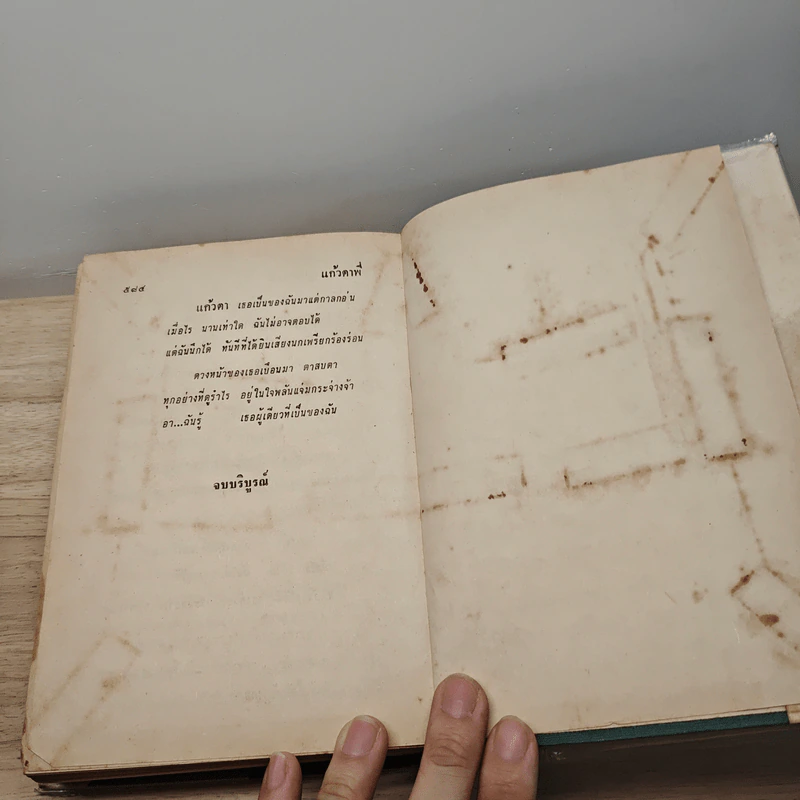 ๕๘๕
แก้วตาพี่
แก้วตา เธอเป็นของฉันมาแต่กาลก่อน
เมื่อไร นานเท่าใด ฉันไม่อาจตอบได้
แต่ฉันนึกได้ ทันทีที่ได้ยินเสียงนกเพรียกร้องร่อน
ดวงหน้าของเธอเบือนมา ตาสบตา
ทุกอย่างที่ดูรำไร อยู่ในใจพลันแจ่มกระจ่างจ้า
อา...ฉันรู้ เธอผู้เดียวที่เป็นของฉัน
จบบริบูรณ์